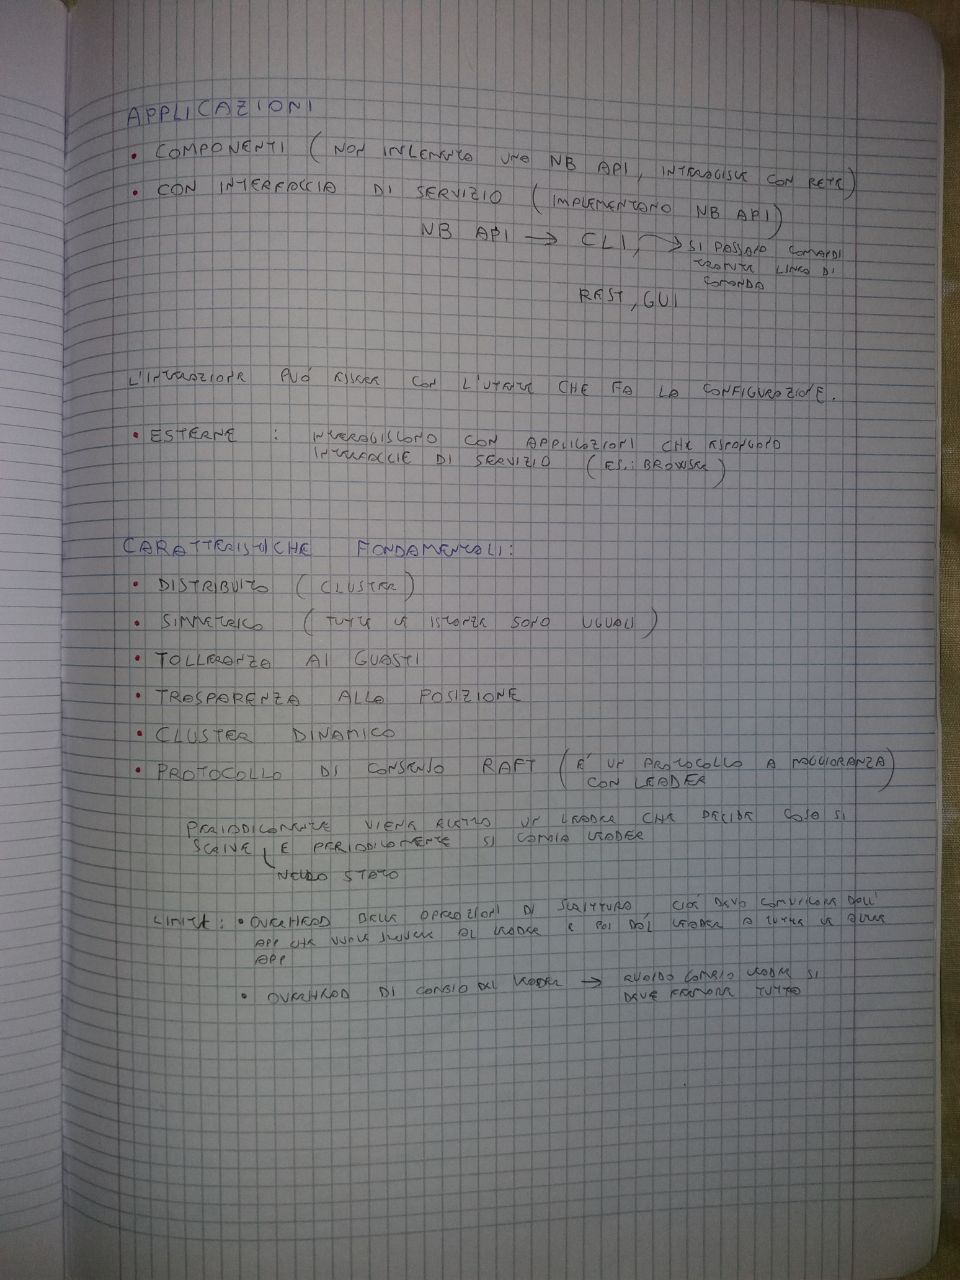 APPLICAZIONI
• COMPONENTI (NON IMPLEMENTO UNA NB API, INTERAGISCE CON RETE)
• CON INTERFACCIA DI SERVIZIO (IMPLEMENTANO NB API)
NB API → CLI, → SI POSSONO COMANDI
TRAMITE LINEA DI
COMANDO
REST, GUI
L'INTERAZIONE PUÒ ESSERE CON L'UTENTE CHE FA LA CONFIGURAZIONE.
• ESTERNE : INTERAGISCONO CON APPLICAZIONI CHE ESPONGONO
INTERFACCIE DI SERVIZIO (ES.: BROWSER)
CARATTERISTICHE FONDAMENTALI:
• DISTRIBUITO (CLUSTER)
• SIMMETRICO (TUTTE LE ISTANZE SONO UGUALI)
• TOLLERANZA AI GUASTI
• TRASPARENZA ALLA POSIZIONE
• CLUSTER DINAMICO
• PROTOCOLLO DI CONSENSO RAFT (È UN PROTOCOLLO A MAGGIORANZA)
CON LEADER
PERIODICAMENTE VIENE ELETTO UN LEADER CHE DECIDE COSA SI
SCRIVE E PERIODICAMENTE SI CAMBIA LEADER
NELLO STATO
LIMITI: • OVERHEAD DELLE OPERAZIONI DI SCRITTURA, CIOÈ DEVO COMUNICARE DALL'
APP CHE VUOLE SCRIVERE AL LEADER E POI DAL LEADER A TUTTE LE ALTRE
APP
• OVERHEAD DI CAMBIO DEL LEADER → QUANDO CAMBIO LEADER SI
DEVE FERMARE TUTTO